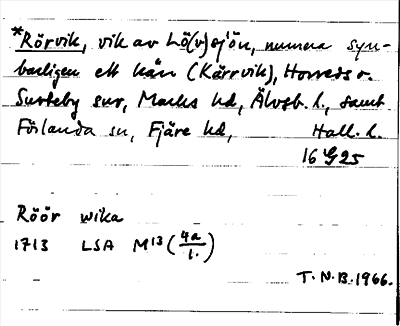 *Rörvik, vik av Lö(v)sjön, numera syn-
barligen ett kärr (Kärrvik), Horreds o.
Surteby snr, Marks hd, Älvsb. l., samt
Förlanda sn, Fjäre hd, Hall. l.
16 G 25
Röör wika
1713 LSA M13 (4a/1.)
T.N.B. 1966.